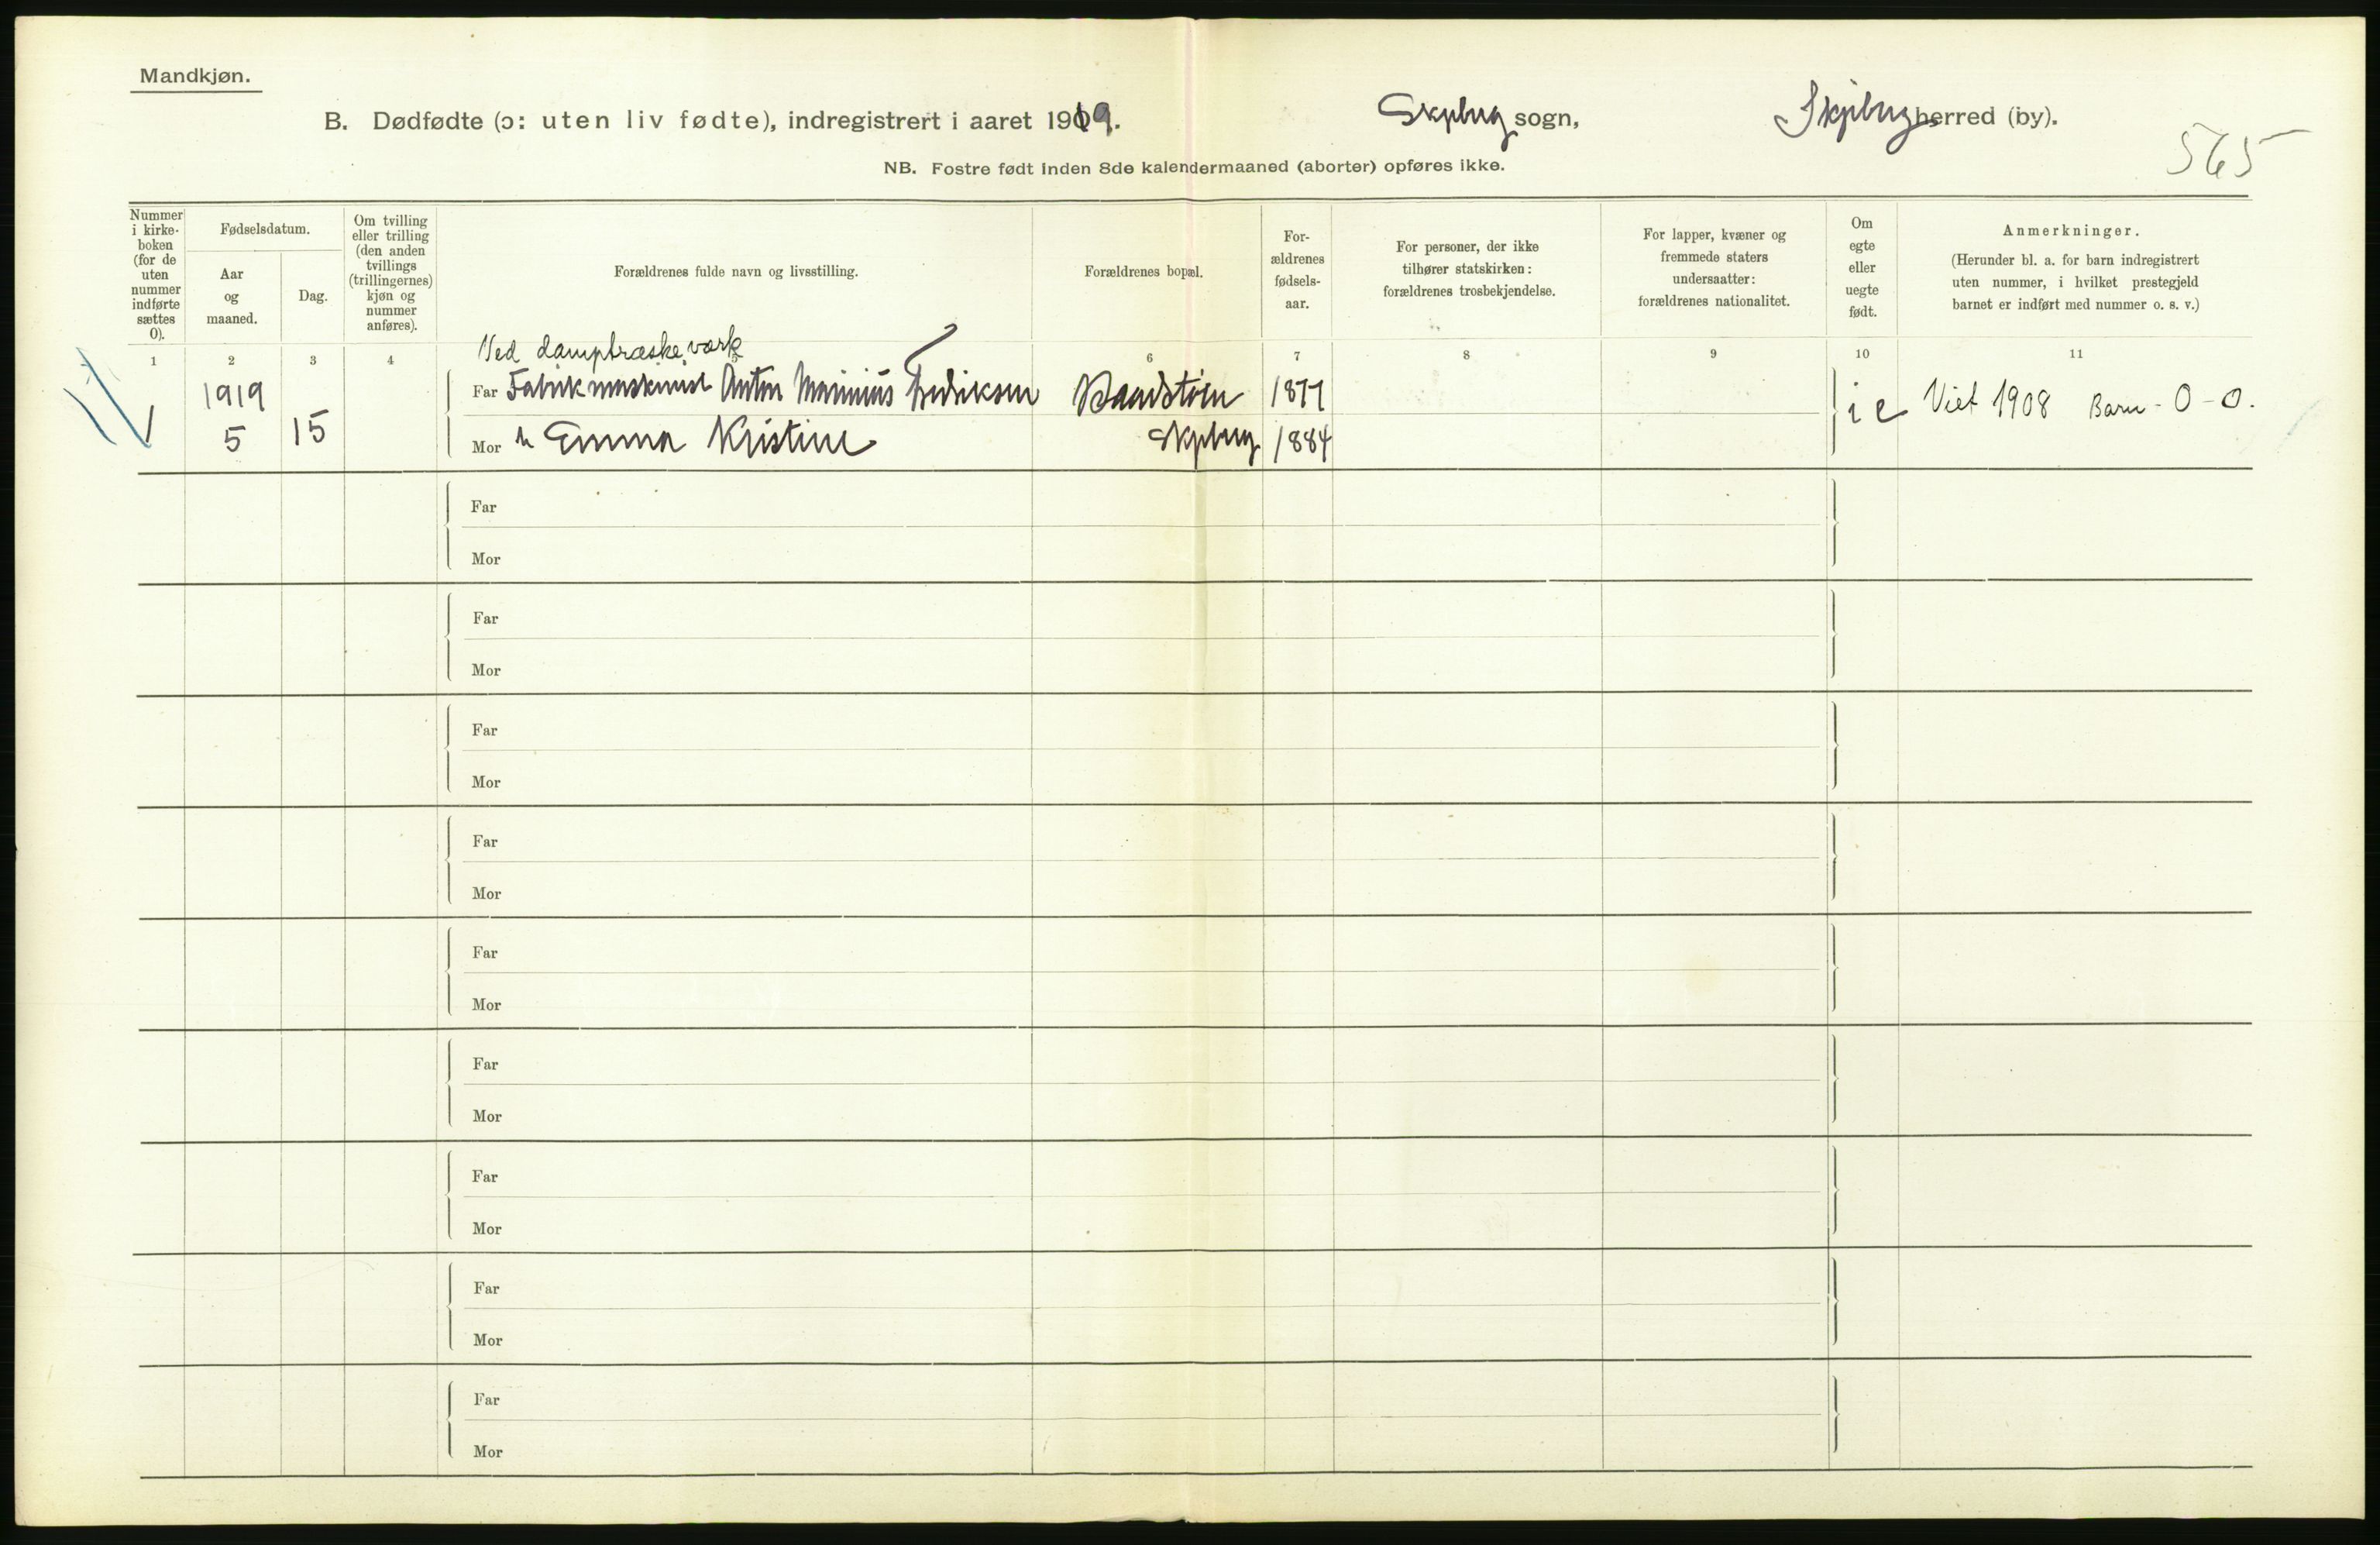 Mandkjøn.
B. Dødfødte (ɔ: uten liv fødte), indregistrert i aaret 1919. Skjebrg sogn, Skjebrg herred (by).
565
NB. Fostre født inden 8de kalendermaaned (aborter) opføres ikke.
Nummer i kirke-boken (for de uten nummer indførte sættes 0).
Fødselsdatum.
Aar og maaned.
Dag.
Om tvilling eller trilling (den anden tvillings (trillingernes) kjøn og nummer anføres).
Forældrenes fulde navn og livsstilling.
Forældrenes bopæl.
For-ældrenes fødsels-aar.
For personer, der ikke tilhører statskirken: forældrenes trosbekjendelse.
For lapper, kvæner og fremmede staters undersaatter: forældrenes nationalitet.
Om egte eller uegte født.
Anmerkninger.
(Herunder bl. a. for barn indregistrert uten nummer, i hvilket prestegjeld barnet er indført med nummer o. s. v.)
1 2 3 4 5 6 7 8 9 10 11
Ved damptræskeværk
1 1919 5 15
Far Fabrikmaskinist Anton Marinius Fredriksen 1877
Mor h Emma Kristine Skjebrg 1884
i e Viet 1908 Barn - 0 - 0.
Far
Mor
Far
Mor
Far
Mor
Far
Mor
Far
Mor
Far
Mor
Far
Mor
Far
Mor
Far
Mor